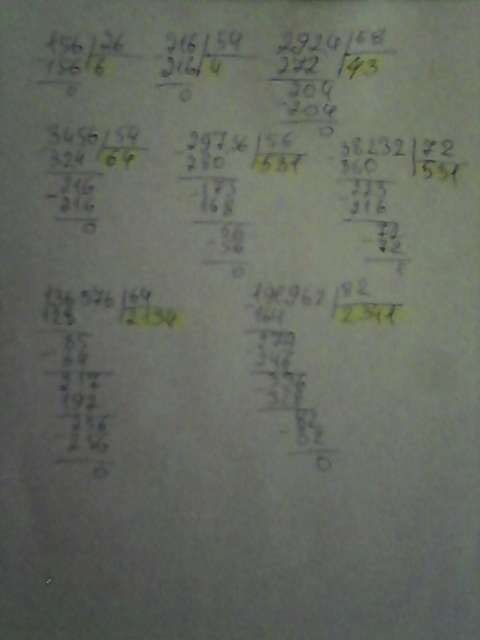 156 26 216 54 2924 68
156 6 216 4 272 43
0 0 204
204
0
3456 54 29736 56 38232 72
324 64 280 531 360 531
216 173 223
216 168 216
0 56 72
56 72
0
136576 64 191962 82
128 2134 164 2341
85 279
64 246
217
192 328
256 82
256 82
0 0